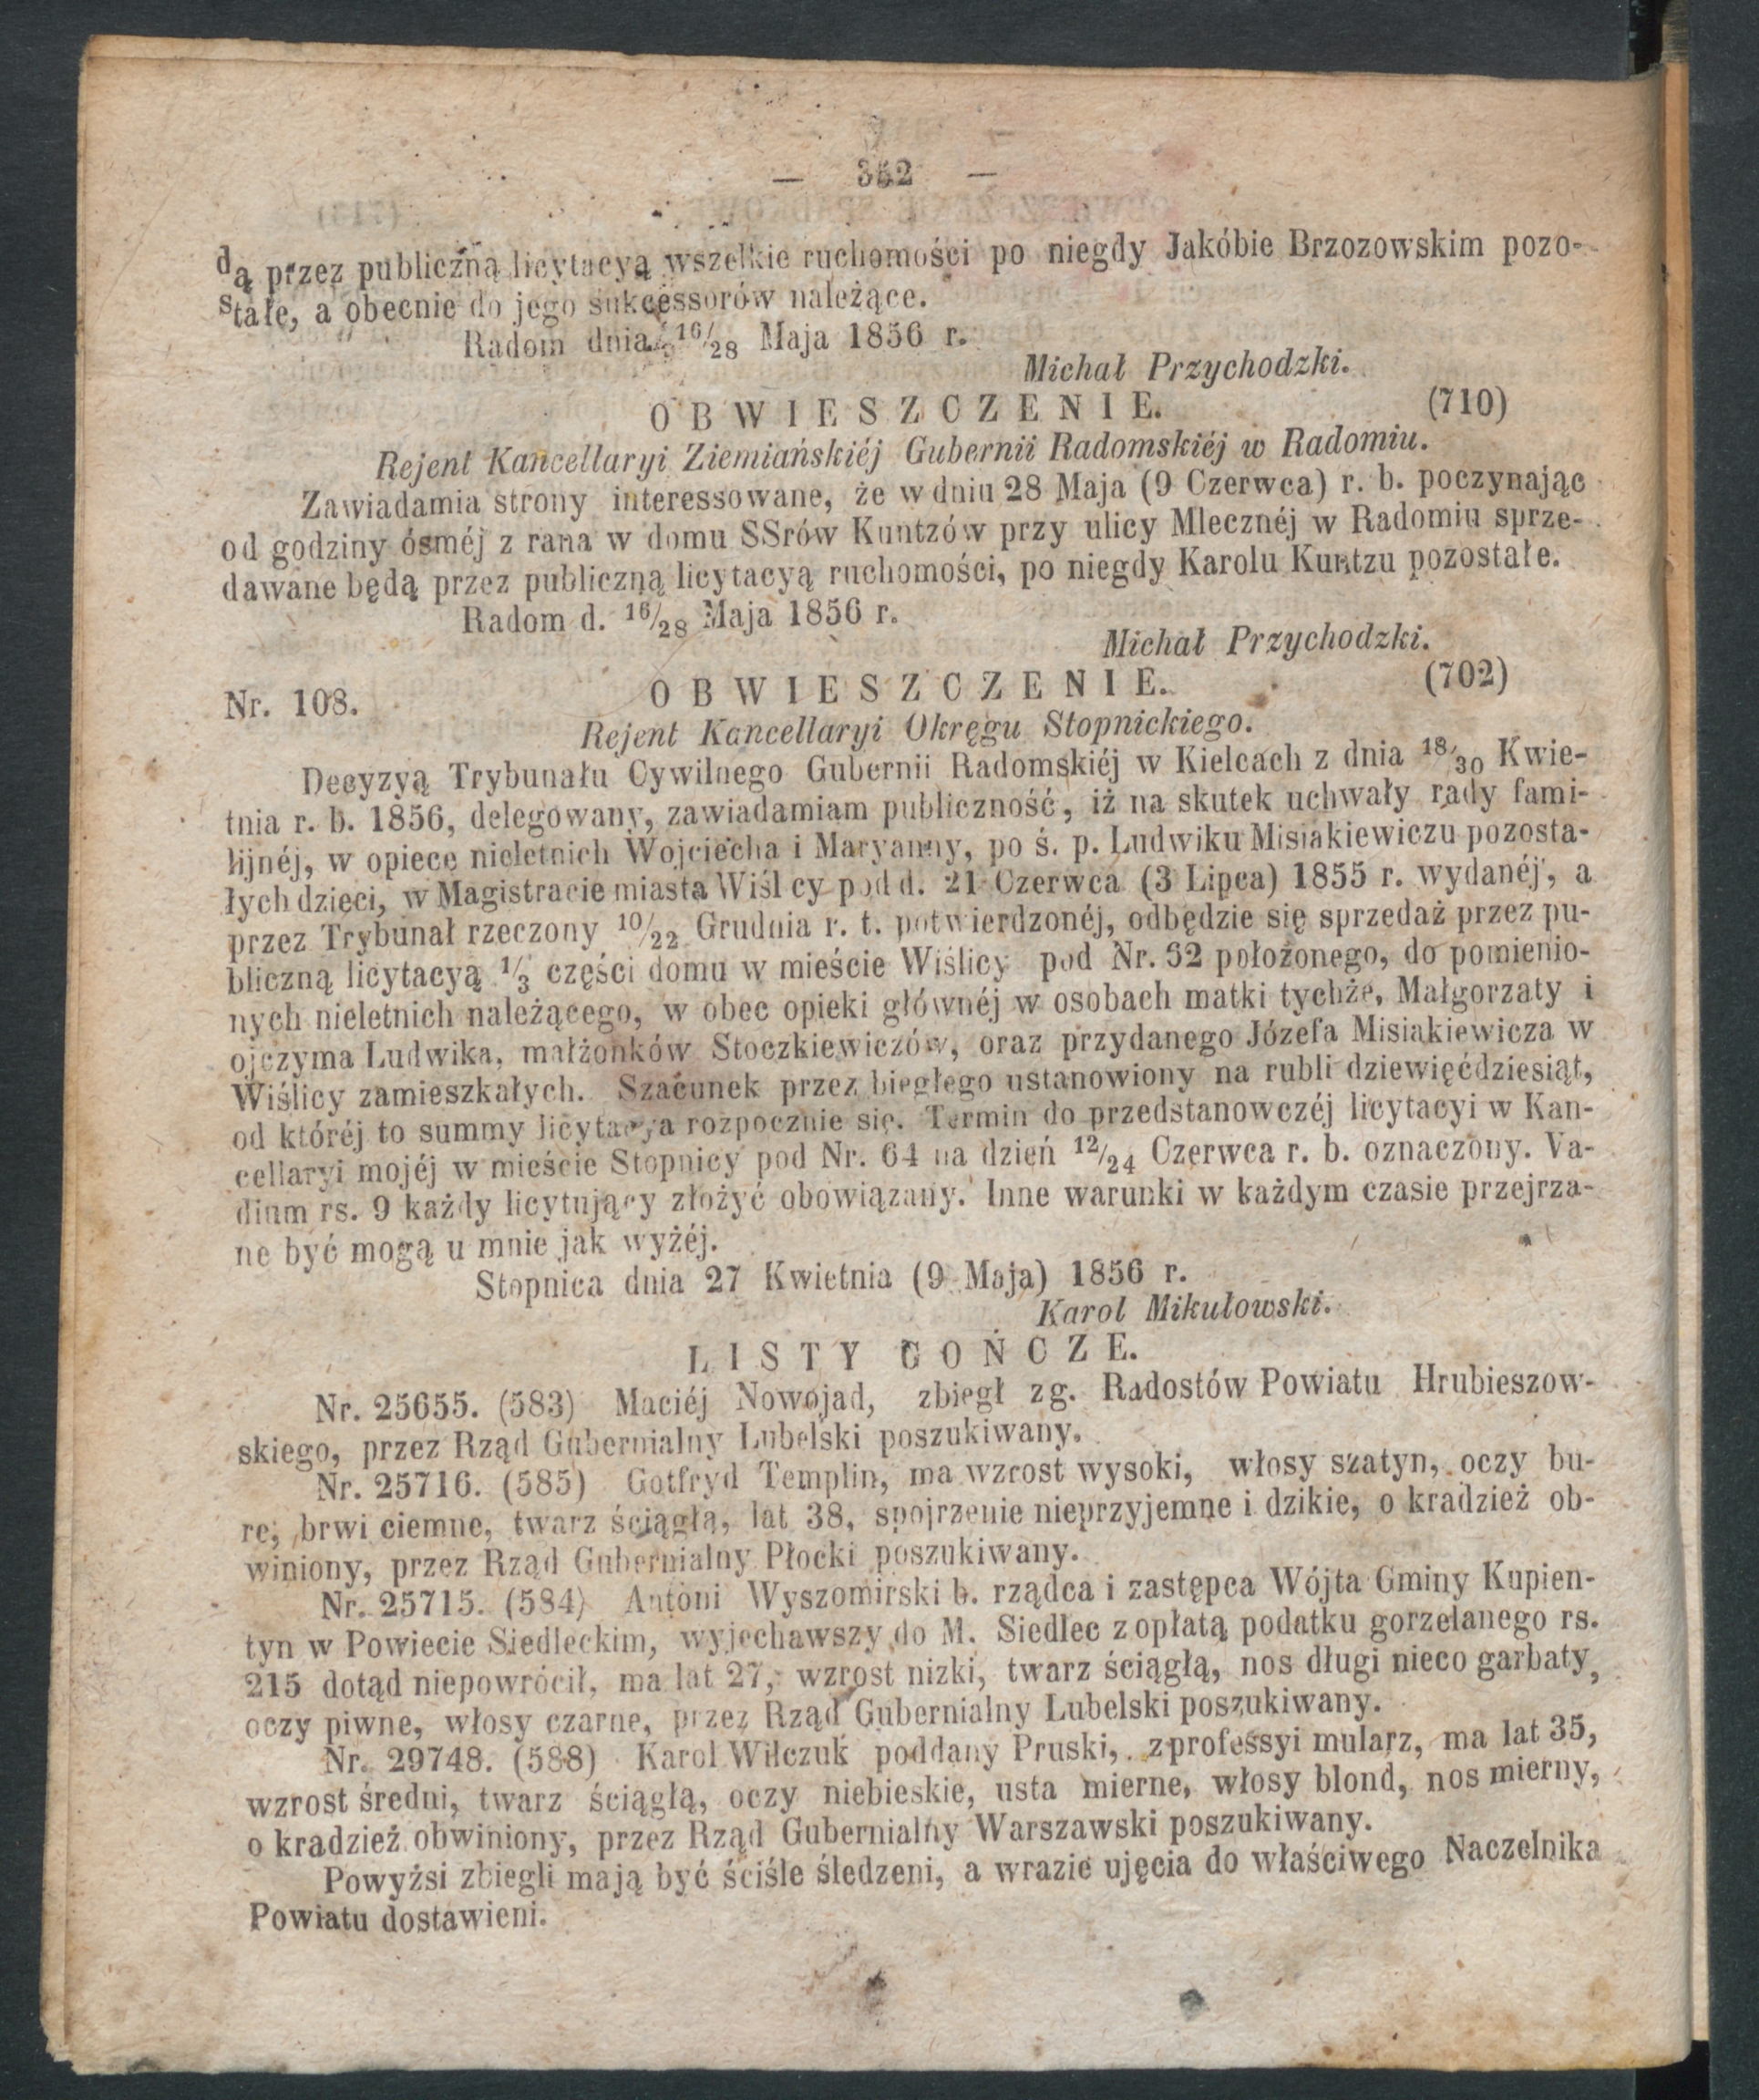 — 352 —
dą przez publiczną licytacyą wszelkie ruchomości po niegdy Jakóbie Brzozowskim pozo-
stałe, a obecnie do jego sukcessorów należące.
Radom dnia 16/28 Maja 1856 r.
Michał Przychodzki.
OBWIESZCZENIE. (710)
Rejent Kancellaryi Ziemiańskiéj Gubernii Radomskiéj w Radomiu.
Zawiadamia strony interessowane, że w dniu 28 Maja (9 Czerwca) r. b. poczynając
od godziny ósméj z rana w domu SSrów Kuntzów przy ulicy Mlecznéj w Radomiu sprze-
dawane będą przez publiczną licytacyą ruchomości, po niegdy Karolu Kuntzu pozostałe.
Radom d. 16/28 Maja 1856 r.
Michał Przychodzki.
Nr. 108. OBWIESZCZENIE. (702)
Rejent Kancellaryi Okręgu Stopnickiego.
Decyzyą Trybunału Cywilnego Gubernii Radomskiéj w Kielcach z dnia 18/30 Kwie-
tnia r. b. 1856, delegowany, zawiadamiam publiczność, iż na skutek uchwały rady fami-
lijnéj, w opiece nieletnich Wojciecha i Maryanny, po ś. p. Ludwiku Misiakiewiczu pozosta-
łych dzieci, w Magistracie miasta Wiślicy pod d. 21 Czerwca (3 Lipca) 1855 r. wydanéj, a
przez Trybunał rzeczony 10/22 Grudnia r. t. potwierdzonéj, odbędzie się sprzedaż przez pu-
bliczną licytacyą 1/3 części domu w mieście Wiślicy pod Nr. 62 położonego, do pomienio-
nych nieletnich należącego, w obec opieki głównéj w osobach matki tychże, Małgorzaty i
ojczyma Ludwika, małżonków Stoczkiewiczów, oraz przydanego Józefa Misiakiewicza w
Wiślicy zamieszkałych. Szacunek przez biegłego ustanowiony na rubli dziewięćdziesiąt,
od któréj to summy licytacya rozpocznie się. Termin do przedstanowczéj licytacyi w Kan-
cellaryi mojéj w mieście Stopnicy pod Nr. 64 na dzień 12/24 Czerwca r. b. oznaczony. Va-
dium rs. 9 każdy licytujący złożyć obowiązany. Inne warunki w każdym czasie przejrza-
ne być mogą u mnie jak wyżéj.
Stopnica dnia 27 Kwietnia (9 Maja) 1856 r.
Karol Mikułowski.
LISTY GOŃCZE.
Nr. 25655. (583) Maciéj Nowojad, zbiegł z g. Radostów Powiatu Hrubieszow-
skiego, przez Rząd Gubernialny Lubelski poszukiwany.
Nr. 25716. (585) Gotfryd Templin, ma wzrost wysoki, włosy szatyn, oczy bu-
re, brwi ciemne, twarz ściągłą, lat 38, spojrzenie nieprzyjemne i dzikie, o kradzież ob-
winiony, przez Rząd Gubernialny Płocki poszukiwany.
Nr. 25715. (584) Antoni Wyszomirski b. rządca i zastępca Wójta Gminy Kupien-
tyn w Powiecie Siedleckim, wyjechawszy do M. Siedlec z opłatą podatku gorzelanego rs.
215 dotąd niepowrócił, ma lat 27, wzrost nizki, twarz ściągłą, nos długi nieco garbaty,
oczy piwne, włosy czarne, przez Rząd Gubernialny Lubelski poszukiwany.
Nr. 29748. (588) Karol Wilczuk poddany Pruski, z professyi mularz, ma lat 35,
wzrost średni, twarz ściągłą, oczy niebieskie, usta mierne, włosy blond, nos mierny,
o kradzież obwiniony, przez Rząd Gubernialny Warszawski poszukiwany.
Powyźsi zbiegli mają być ściśle śledzeni, a wrazie ujęcia do właściwego Naczelnika
Powiatu dostawieni.